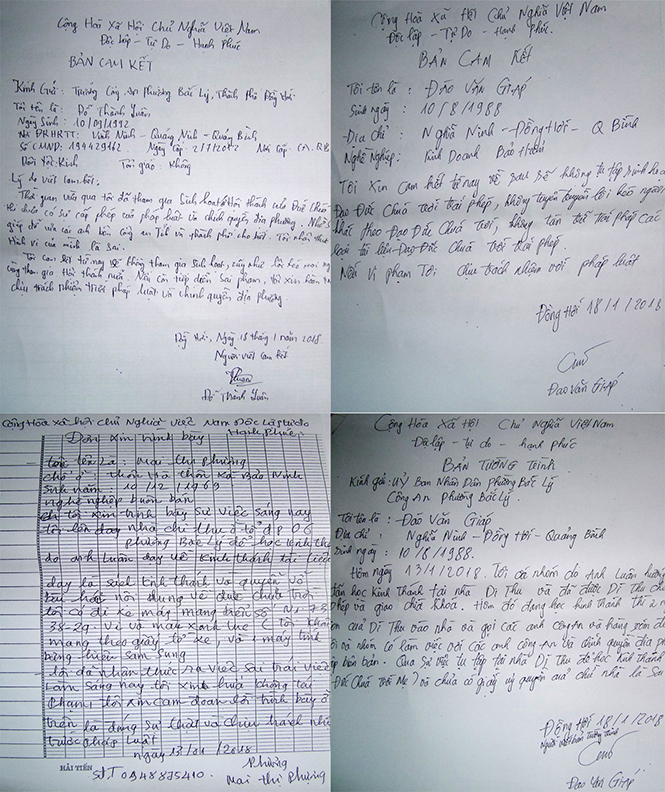 Cộng Hoà Xã Hội Chủ Nghĩa Việt Nam
Độc Lập - Tự Do - Hạnh Phúc
BẢN CAM KẾT
Kính Gửi: Trưởng Công An Phường Bắc Lý, Thành Phố Đồng Hới.
Tôi tên là: Đỗ Thành Luân
Ngày Sinh: 10/09/1992
Nơi ĐKHKTT: Vĩnh Ninh - Quảng Ninh - Quảng Bình
Số CMND: 194429162. Ngày Cấp: 2/7/2012 Nơi Cấp: CA. QB
Dân Tộc: Kinh Tôn giáo: Không
Lý do viết cam kết:
Thời gian vừa qua tôi đã tham gia Sinh hoạt Hội thánh của Đức Chúa
có sự cấp phép của pháp luật và chính quyền địa phương. Nhờ sự
giúp đỡ của các anh bên công an Tỉnh và thành phố cho biết. Tôi nhận thức
Hành vi của mình là sai.
Tôi cam kết từ nay về không tham gia sinh hoạt, cũng như lôi kéo mọi người
cùng tham gia Hội thánh nữa. Nếu còn tiếp diễn sai phạm, tôi xin hoàn toàn
chịu trách nhiệm trước pháp luật và chính quyền địa phương.
Đồng Hới, Ngày 18 tháng 1 năm 2018.
Người viết cam kết
Đỗ Thành Luân
Cộng Hoà Xã Hội Chủ Nghĩa Việt Nam
Độc lập - Tự Do - Hạnh Phúc.
BẢN CAM KẾT
Tôi tên là: ĐÀO VĂN GIÁP
Sinh ngày: 10/8/1988
Địa chỉ: Nghĩa Ninh - Đồng Hới - Q Bình
Nghề Nghiệp: Kinh Doanh Bảo Hiểm
Tôi Xin Cam kết từ nay về sau sẽ không tụ tập sinh hoạt
Đạo Đức Chúa Trời trái phép, không tuyên truyền lôi kéo người
khác theo Đạo Đức Chúa Trời, không tán trái phép các
loại tài liệu Đạo Đức Chúa Trời trái phép.
Nếu Vi phạm Tôi chịu trách nhiệm với pháp luật
Đồng Hới 18/1/2018
Đào Văn Giáp
Cộng Hòa Xã hội Chủ Nghĩa Việt Nam Độc Lập tự do
Hạnh Phúc
Đơn xin trình bày
tôi tên Là: Mai Thị Phượng
chỗ ở thôn Hà thôn xã Bảo Ninh
sinh năm 10/12/1969
nghề nghiệp buôn bán
tôi xin trình bày sự việc sáng nay
tôi lên đây nhà chị thu ở tổ dp
phường Bắc Lý để học kinh thánh
do anh Luân dạy về Kinh thánh tài liệu
dạy là sách kinh thánh và quyển vở
nội dung về đức chúa trời
tôi có đi xe máy mang biển số
38-29 vì và máy xanh lục (tôi không
mang theo giấy tờ xe, và 1 máy tính
bảng hiệu sam sung
tôi đã nhận thức ra việc sai trái việc
làm sáng nay tôi xin hứa không tái
phạm. tôi xin cam đoan lời trình bày ở
trên là đúng sự thật và chịu trách nhiệm
trước pháp luật
ngày 13/01/2018
Phượng
Mai thị Phượng
HẢI TIẾN
SĐT 0948835410.
Cộng Hòa Xã Hội Chủ Nghĩa Việt Nam
Độc lập - tự do - hạnh phúc
BẢN TƯỜNG TRÌNH
Kính gửi: Uỷ Ban Nhân Dân Phường Bắc Lý
Công An Phường Bắc Lý.
Tôi tên là: ĐÀO VĂN Giáp
Địa chỉ: Nghĩa Ninh - Đồng Hới - Quảng Bình
Sinh ngày: 10/8/1988.
Hôm ngày 13/1/2018. Tôi có nhóm do Anh Luân hướng
dẫn học Kinh Thánh tại nhà Dì Thu và đã được Dì Thu cho
phép và giao chìa khoá. Hôm đó đang học kinh thánh thì
con của Dì Thu vào nhà và gọi các anh công An và hàng xóm
tôi và nhóm có làm việc với các anh công An và chính quyền địa
lập biên bản. Qua sự việc tụ tập tại nhà Dì Thu để học kinh thánh
(Đức Chúa Trời Mẹ) và chưa có giấy uỷ quyền của chủ nhà là Sai
Đồng Hới 18/1/2018
Người viết bản tường trình
Đào Văn Giáp